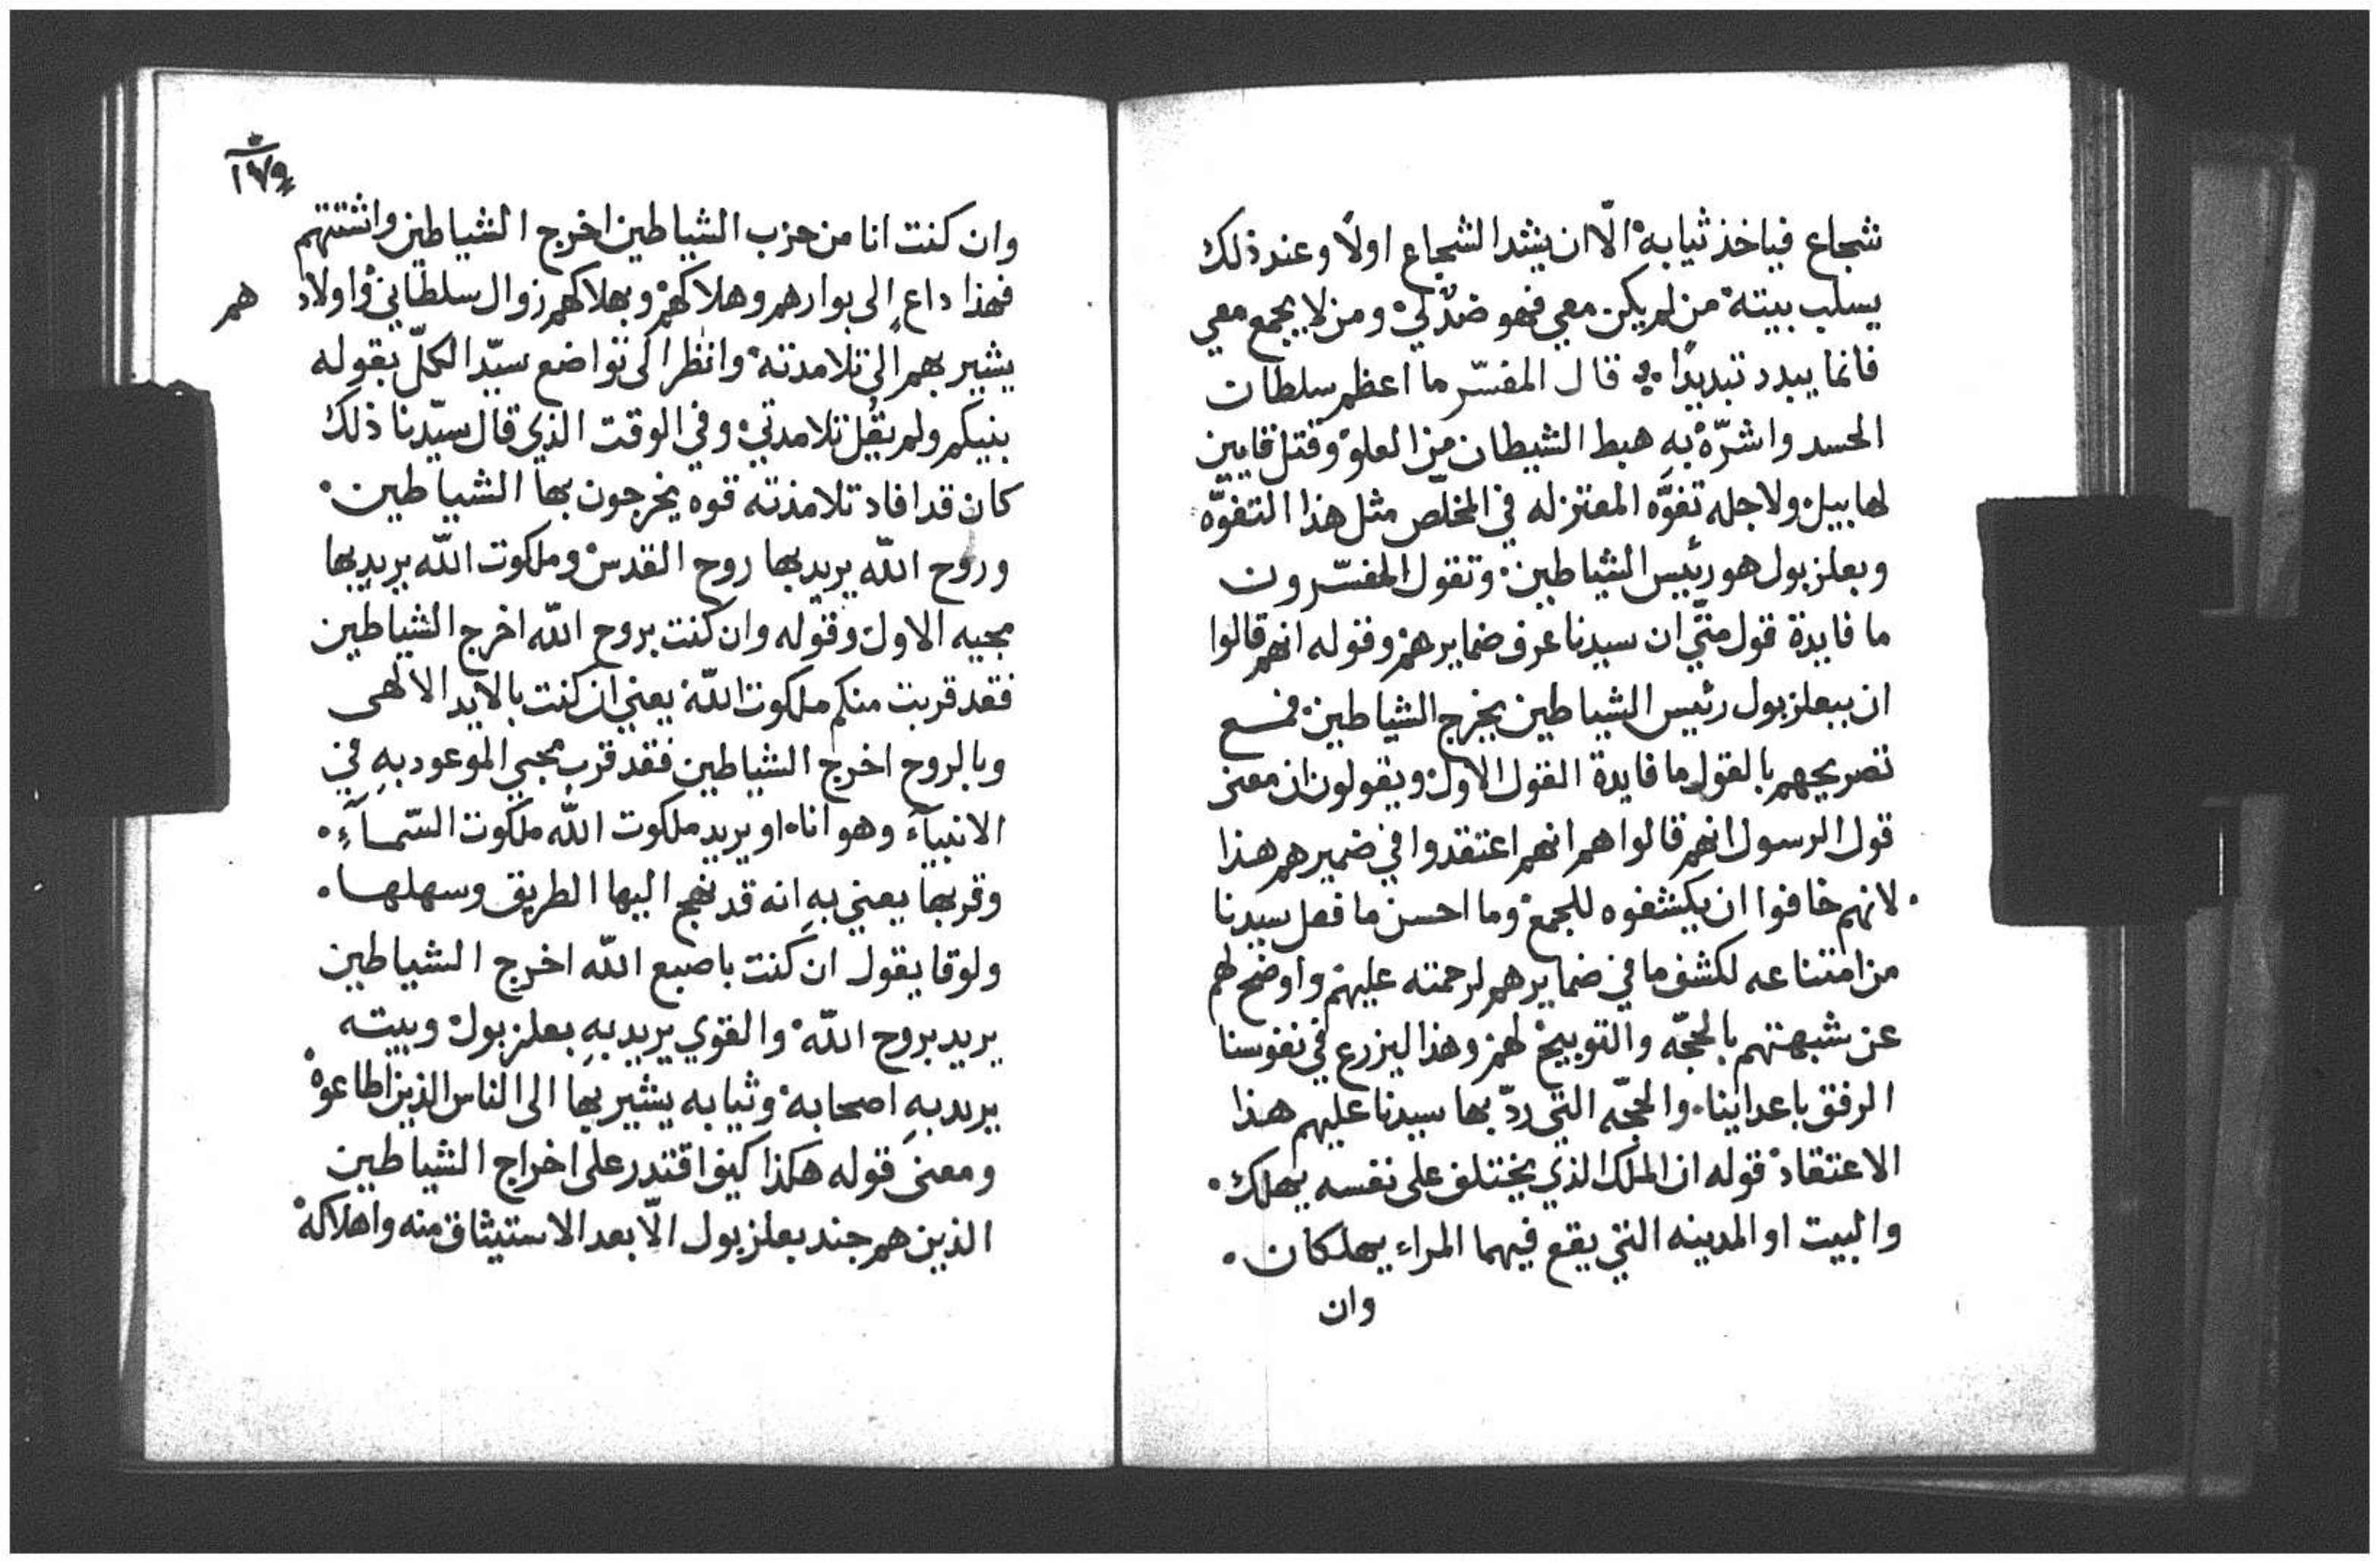 شجاع فياخذ ثيابه الّا ان يشد الشجاع اولًا وعند ذلك
يسلب بيته من لم يكن معي فهو ضدٌ لي ومن لا يجمع معي
فانما يبدد تبديدًا قال المفسّر ما اعظم سلطان
الحسد واشرّه به هبط الشيطان من العلو وقتل قايين
لهابيل ولاجله تفوَّه المعتزله في المخلّص مثل هذا التفوّه
وبعلزبول هو رئيس الشياطين وتقول المفسّرون
ما فايدة قول متّي ان سيدنا عرف ضمايرهم وقوله انهم قالوا
ان ببعلزبول رئيس الشياطين يخرج الشياطين فمع
تصريحهم بالقول ما فايدة القول الاول ويقولون ان معنى
قول الرسول انهم قالوا هم انهم اعتقدوا في ضميرهم هذا
لانهم خافوا ان يكشفوه للجمع وما احسن ما فعل سيدنا
من امتناعه لكشف ما في ضمايرهم لرحمته عليهم واوضح لهم
عن شبهتهم بالحجّه والتوبيخ لهم وهذا ليزرع في نفوسنا
الرفق باعداينا والحجّه التي ردّ بها سيدنا عليهم هذا
الاعتقاد قوله ان الملك الذي يختلف على نفسه يهلك
والبيت او المدينه التي يقع فيهما المراء يهلكان
وان
١٧٩
وان كنت انا من حزب الشياطين اخرج الشياطين واشتتهم
فهذا داعٍ الى بوارهم وهلاكهم وبهلاكهم زوال سلطاني واولادهم
يشير بهم الى تلامدته وانظر الى تواضع سيّد الكلّ بقوله
بنيكم ولم يقُل تلامدتي وفي الوقت الذي قال سيّدنا ذلك
كان قد افاد تلامذته قوه يخرجون بها الشياطين
وروح اللّه يريد بها روح القدس وملكوت اللّه يريد بها
مجيه الاول وقوله وان كنت بروح اللّه اخرج الشياطين
فقد قربت منكم ملكوت اللّه يعني ان كنت بالايد الالهى
وبالروح اخرج الشياطين فقد قرب مجيي الموعود بهِ في
الانبيآء وهو انا او يريد ملكوت اللّه ملكوت السّمآءِ
وقربها يعني بهِ انه قد نهج اليها الطريق وسهلها
ولوقا يقول ان كنت باصبع اللّه اخرج الشياطين
يريد بروح اللّه والقوي يريد بهِ بعلزبول وبيته
يريد بهِ اصحابه وثيابه يشير بها الى الناس الذين اطاعوه
ومعنى قوله هكذا كيف اقتدر على اخراج الشياطين
الذين هم جند بعلزبول الّا بعد الاستيثاق منه واهلاكه